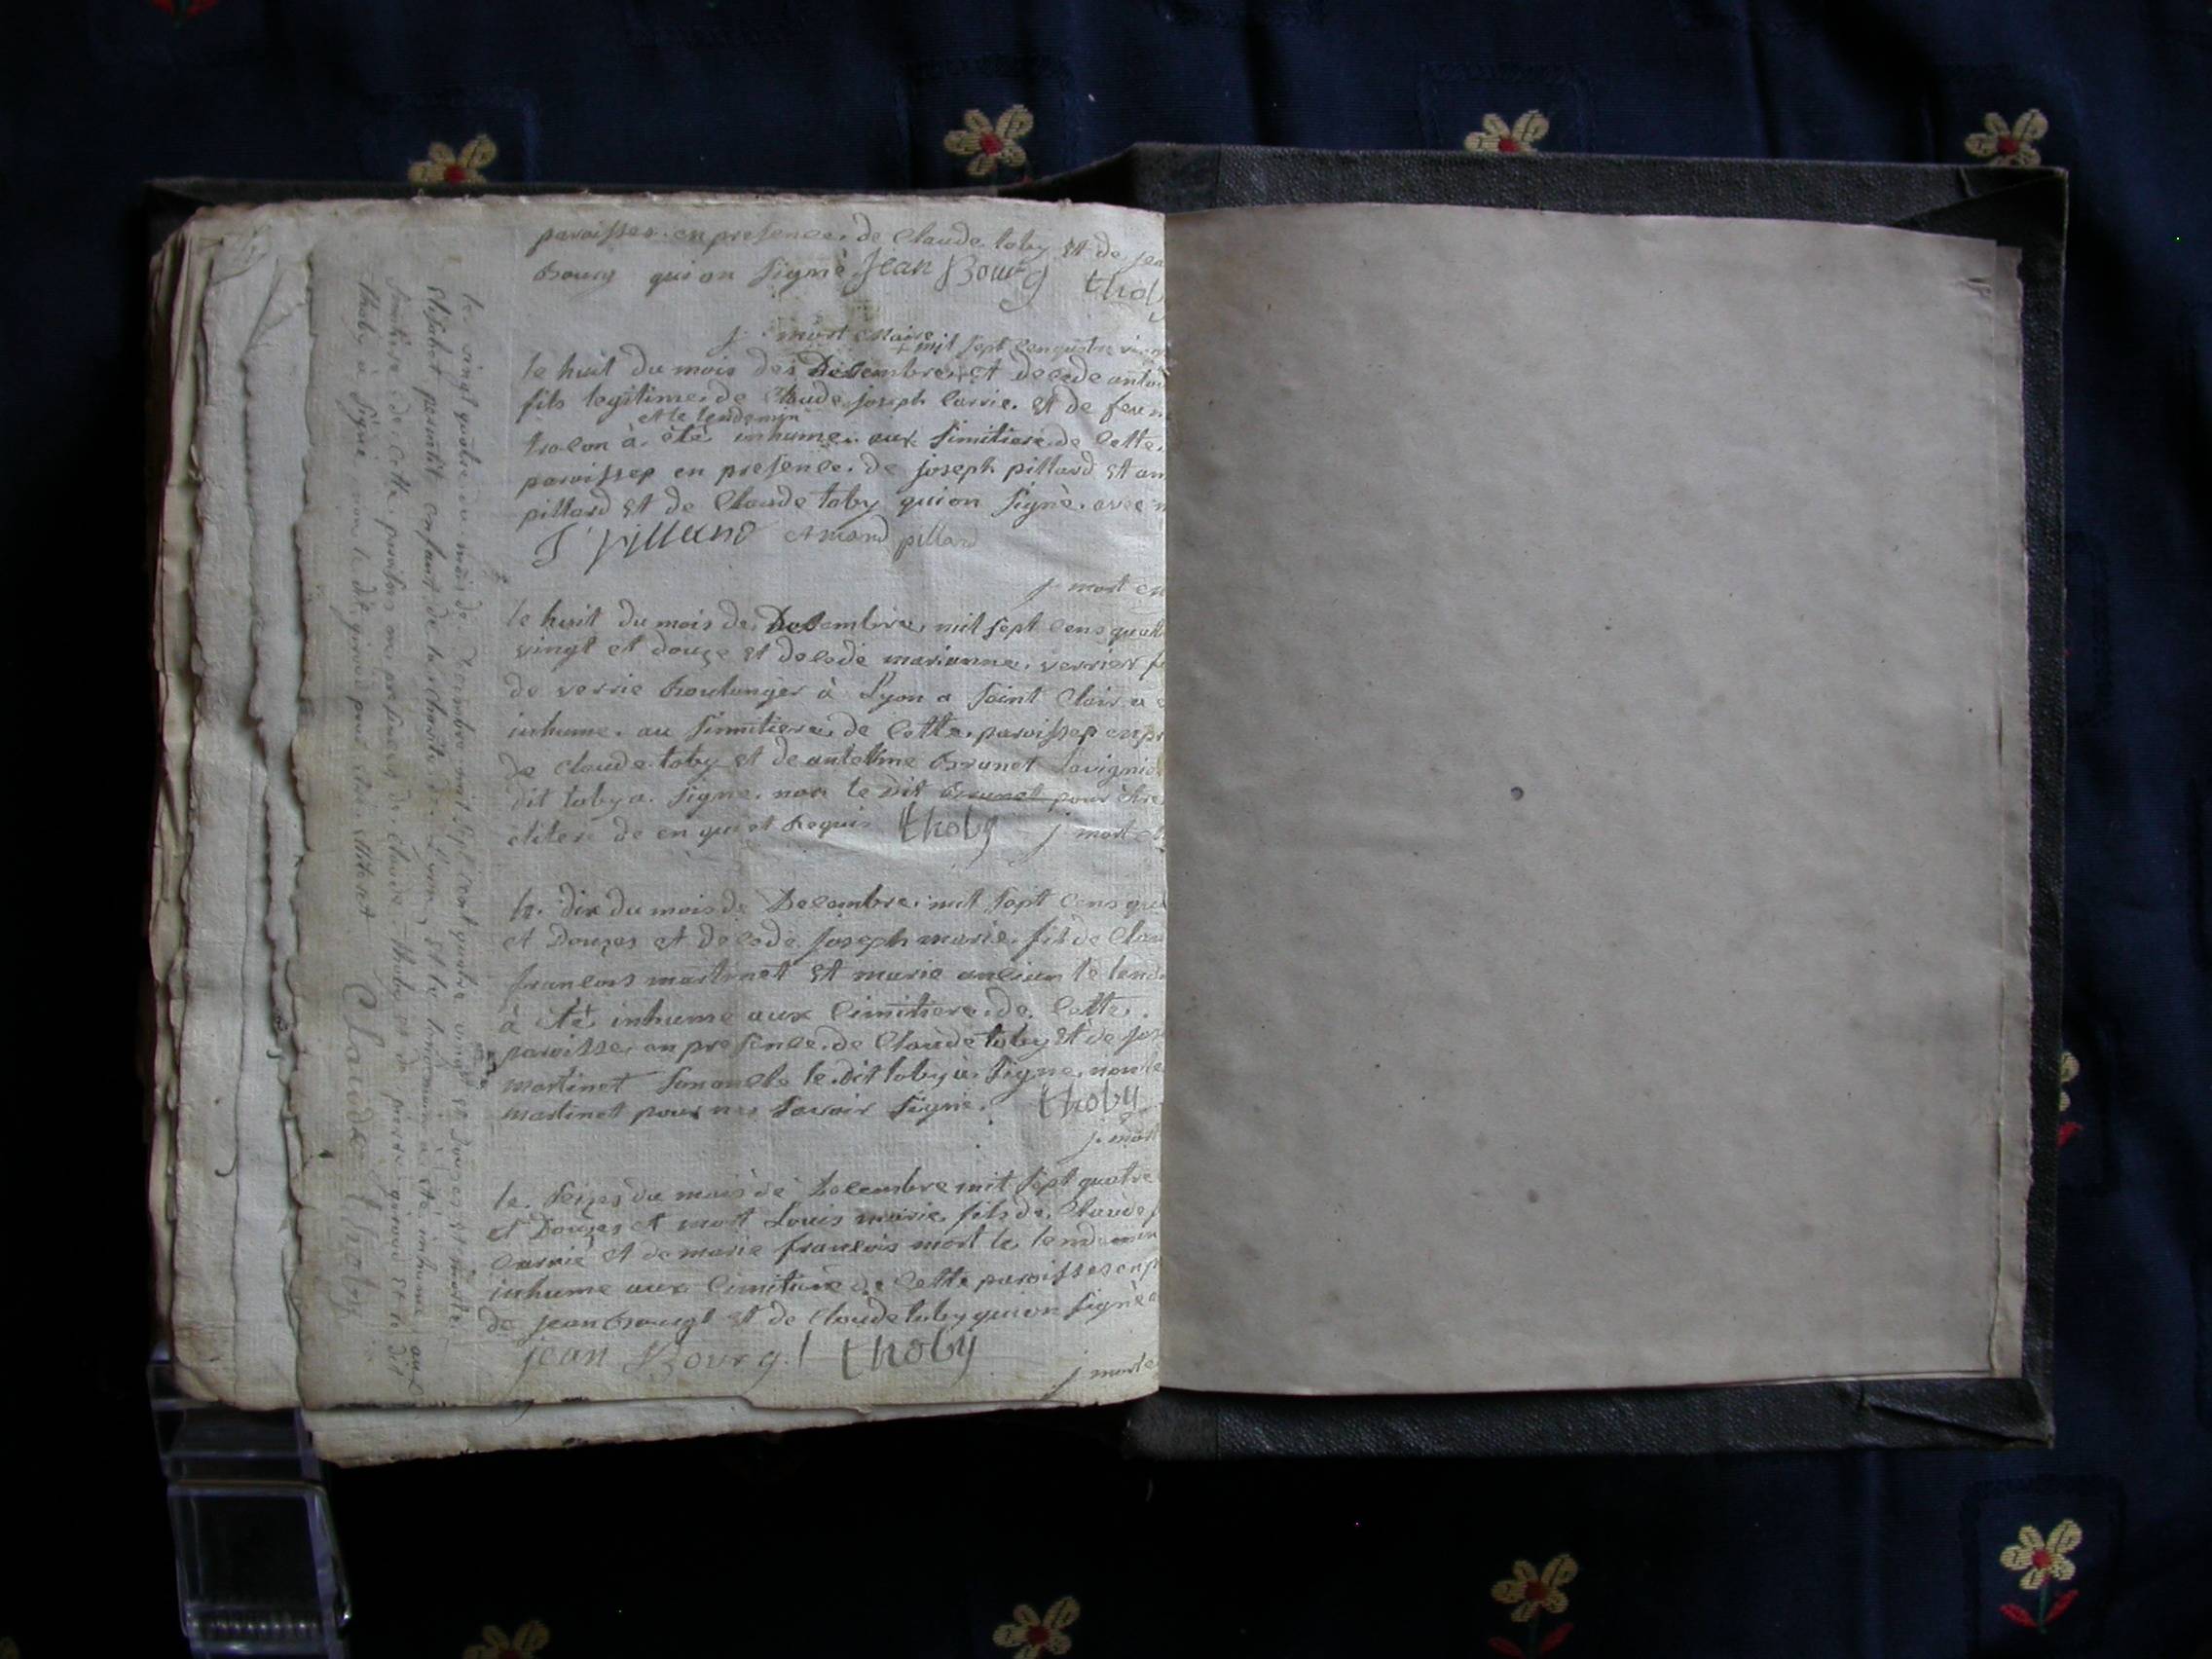 paroisses en presence de Claude toby et de jea
Bourg qui on signè jean Bourg thoby
j. mort
mil sept cen quatre vin
le huit du mois des Desembre et decede antoi
fils legitime de Claude joseph carrie. et de feue
et le lendemin
à été inhume aux simitiere de cette
paroissep en presence de joseph pillard et am
pillard et de Claude toby qui on signè. avec
J pillard Amand pillard
j. mort
le huit du mois de Desembre mil sept cens quat
vingt et douze et decede marianne verrier
de verrie Boulanger à Lyon a saint Clair a
inhume. au simitiere de cette paroissep en pr
de Claude toby et de antelme Brunet
dit toby a signe. non le dit Brunet pour être
eliterè de en quiet Requis thoby j mort
le. dix du mois de Decembre mil sept cens qu
et Douzes et decede joseph marie fils de Clau
francois martinet et marie ancian le lend
à été inhume aux Cimitiere de Cette
paroisse en presence de Claude toby et de jos
martinet son oncle le dit toby à signe. non le
martinet pour ne savoir signé. thoby
j. mort
le. seizes du mois de Decembre mil sept quatre
et Douzes et mort Louis marie fils de Claude j
carrié et de marie francois mort le lendemin
inhume aux Cimitiere de Cette paroisses en p
de jean Bourgt et de Claude toby qui on signè
jean Bourg.t thoby
j mort
le vingt quatre du mois de desembre mil sept cent quatre vingt et Douzes et morte
elisabet persontit enfant de la charité de Lyon, et le lendemain à été inhumé aux
simitiere de cette paroisses en presence de Claude thoby et de pierre giroud et le dit
thoby à signé non le dit giroud pour être illiteré
Claude thoby